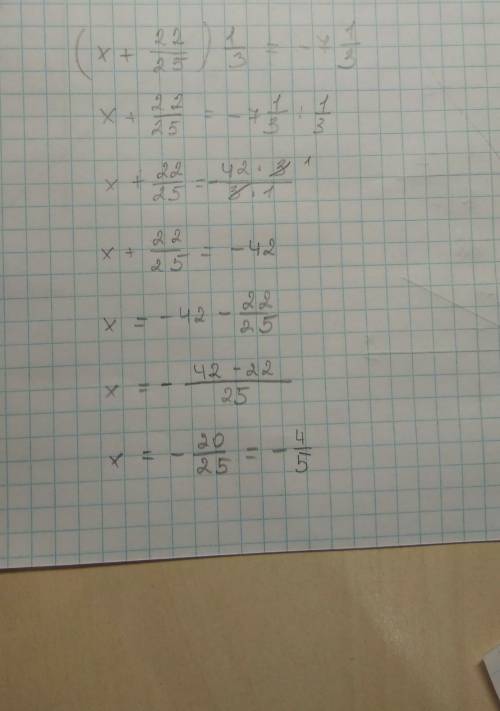 (x + 22/25) 1/3 = - 1/3
x + 22/25 = - 1/3 : 1/3
x + 22/25 = - 42 · 3 / 3 · 1 1
x + 22/25 = - 42
x = - 42 - 22/25
x = - 42 - 22 / 25
x = - 20/25 = - 4/5